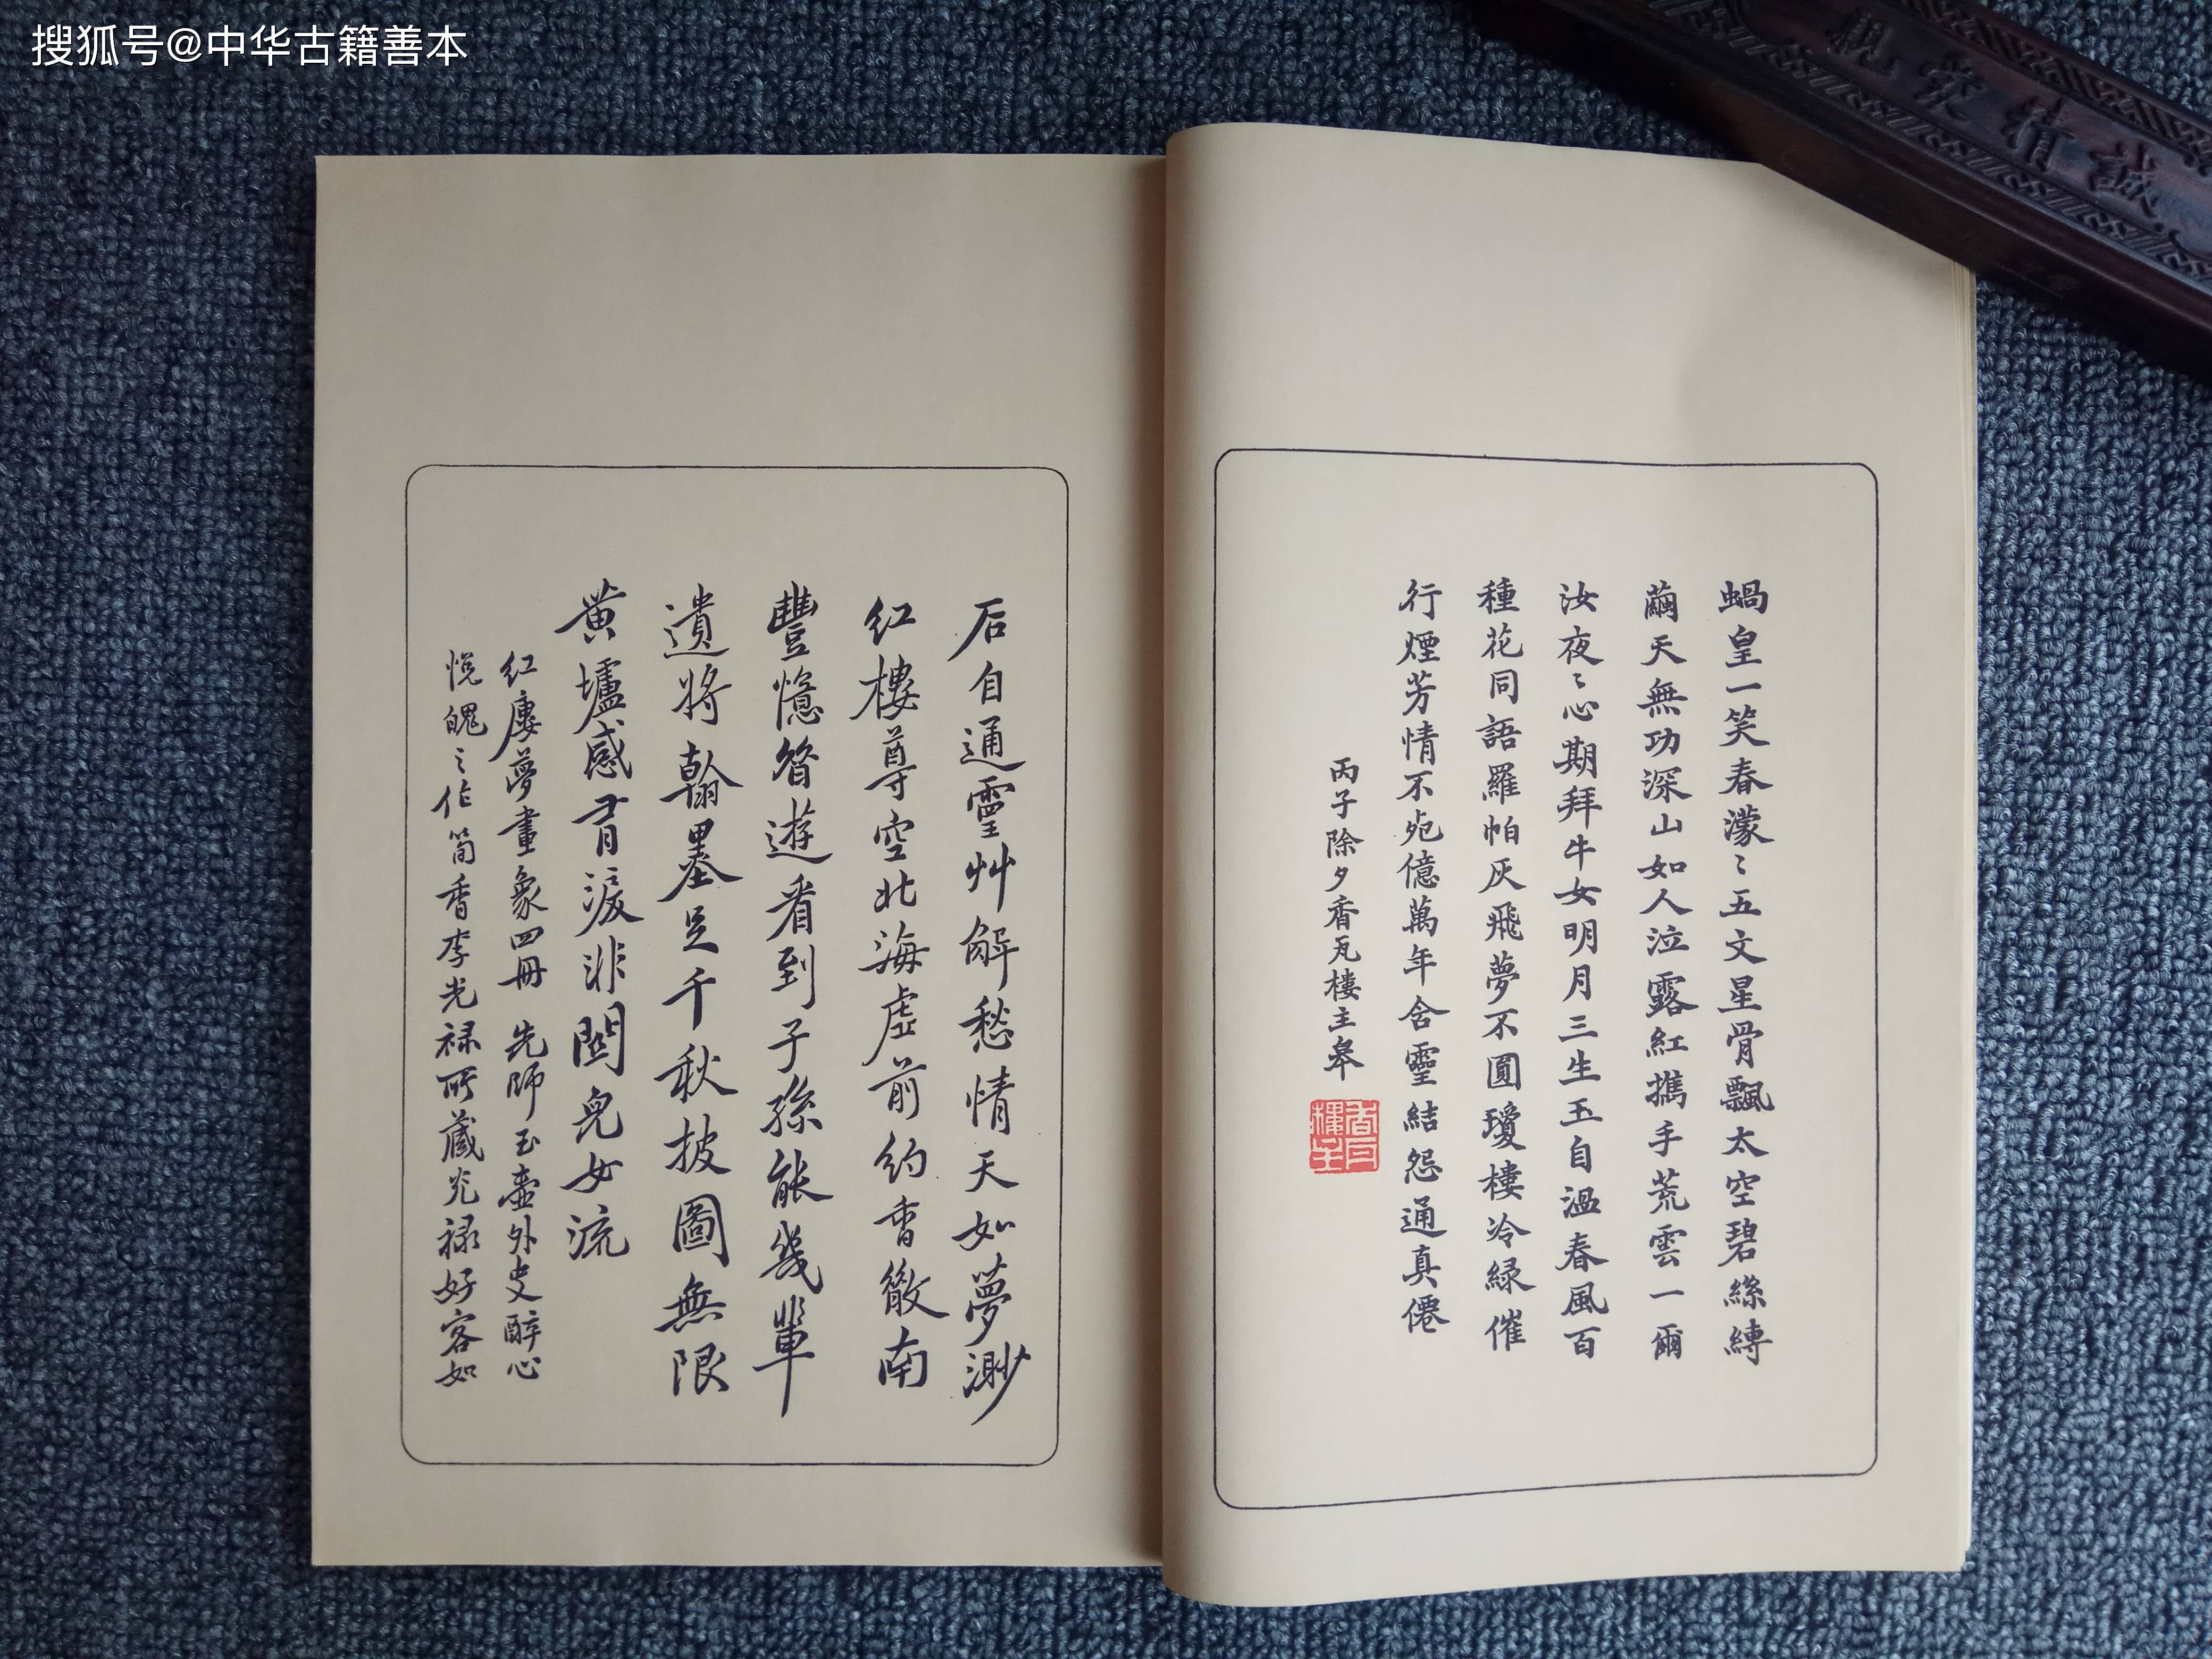 搜狐号@中华古籍善本
蝸皇一笑春濛〻五文星骨飄太空碧絲縳
繭天無功深山如人泣露紅擕手荒雲一爾
汝夜〻心期拜牛女明月三生玉自溫春風百
種花同語羅帕灰飛夢不圓瓊樓冷綠催
行煙芳情不死億萬年含靈結怨通真僊
丙子除夕香瓦樓主皋
石自通靈艸解愁情天如夢渺
紅樓尊空北海虛前約香散南
豐憶昝遊看到子孫能幾輩
遺將翰墨足千秋披圖無限
黃壚感有淚非關兒女流
紅廔夢畫象四冊 先師玉壺外史醉心
悅魄之作筠香李光祿所藏光祿好客如